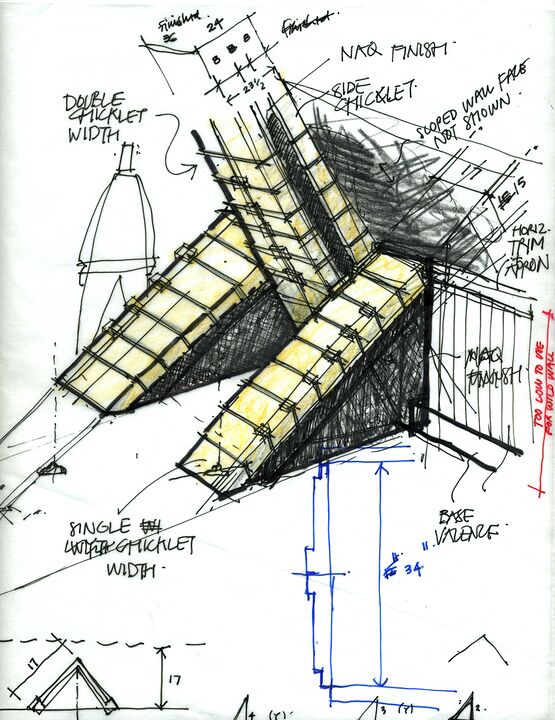 Finished
36
24
Finished
B B B
23 1/2
NAQ FINISH.
SIDE
CHICKLET.
DOUBLE
CHICKLET
WIDTH
SLOPED WALL FACE
NOT SHOWN.
15
HORIZ.
TRIM
APRON
TOO LOW TO USE
FOR WILD WALL
NAQ
FINISH.
BASE
VALENCE.
SINGLE
WIDTH CHICKLET
WIDTH.
34"
17
17
4 (Y)
3 (Y)
2